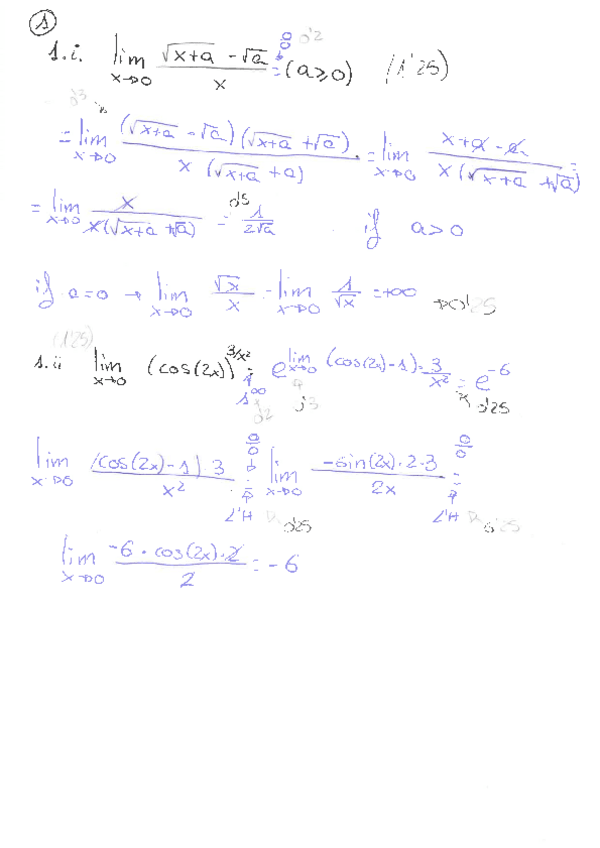 ①
1.i. lim x→0 (√(x+a) - √a)/x = (a≥0) 0/0 0'2 (1'25)
0'3
= lim x→0 ((√(x+a) - √a)(√(x+a) + √a))/(x(√(x+a) + a)) = lim x→0 (x+a-a)/(x(√(x+a) + √a)) =
= lim x→0 x/(x(√(x+a) + √a)) = 1/(2√a) 0'5 if a>0
if a=0 → lim x→0 √x/x = lim x→0 1/√x = +∞ → 0'25
(1'25)
1.ii lim x→0 (cos(2x))^(3/x²) = e^(lim x→0 (cos(2x)-1)·3/x²) = e^-6
1^∞ 0'2 0'3 0'25
lim x→0 ((cos(2x)-1)3)/x² = 0/0 lim x→0 (-sin(2x)·2·3)/2x = 0/0
L'H 0'25 L'H 0'25
lim x→0 (-6·cos(2x)·2)/2 = -6